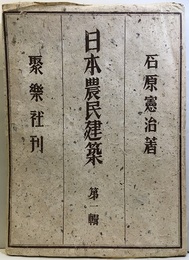 石原憲治著
日本農民建築
第一輯
聚樂社刊